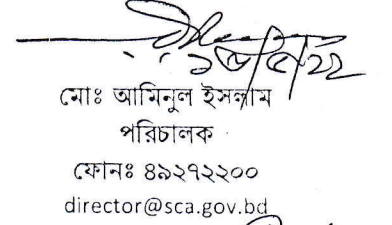 মোঃ আমিনুল ইসলাম
পরিচালক
ফোনঃ ৪৯২৭২২০০
director@sca.gov.bd